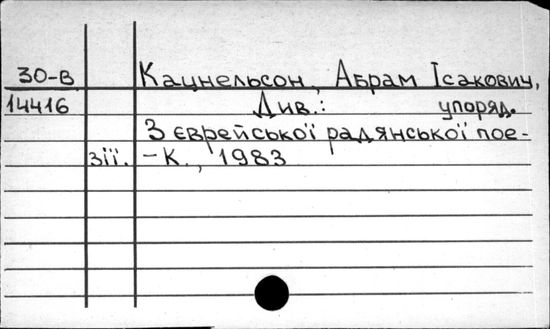 30-В Кацнельсон, Абрам Ісакович,
14416 Див.: упоряд.
З єврейської радянської пое-
зії. -К., 1983